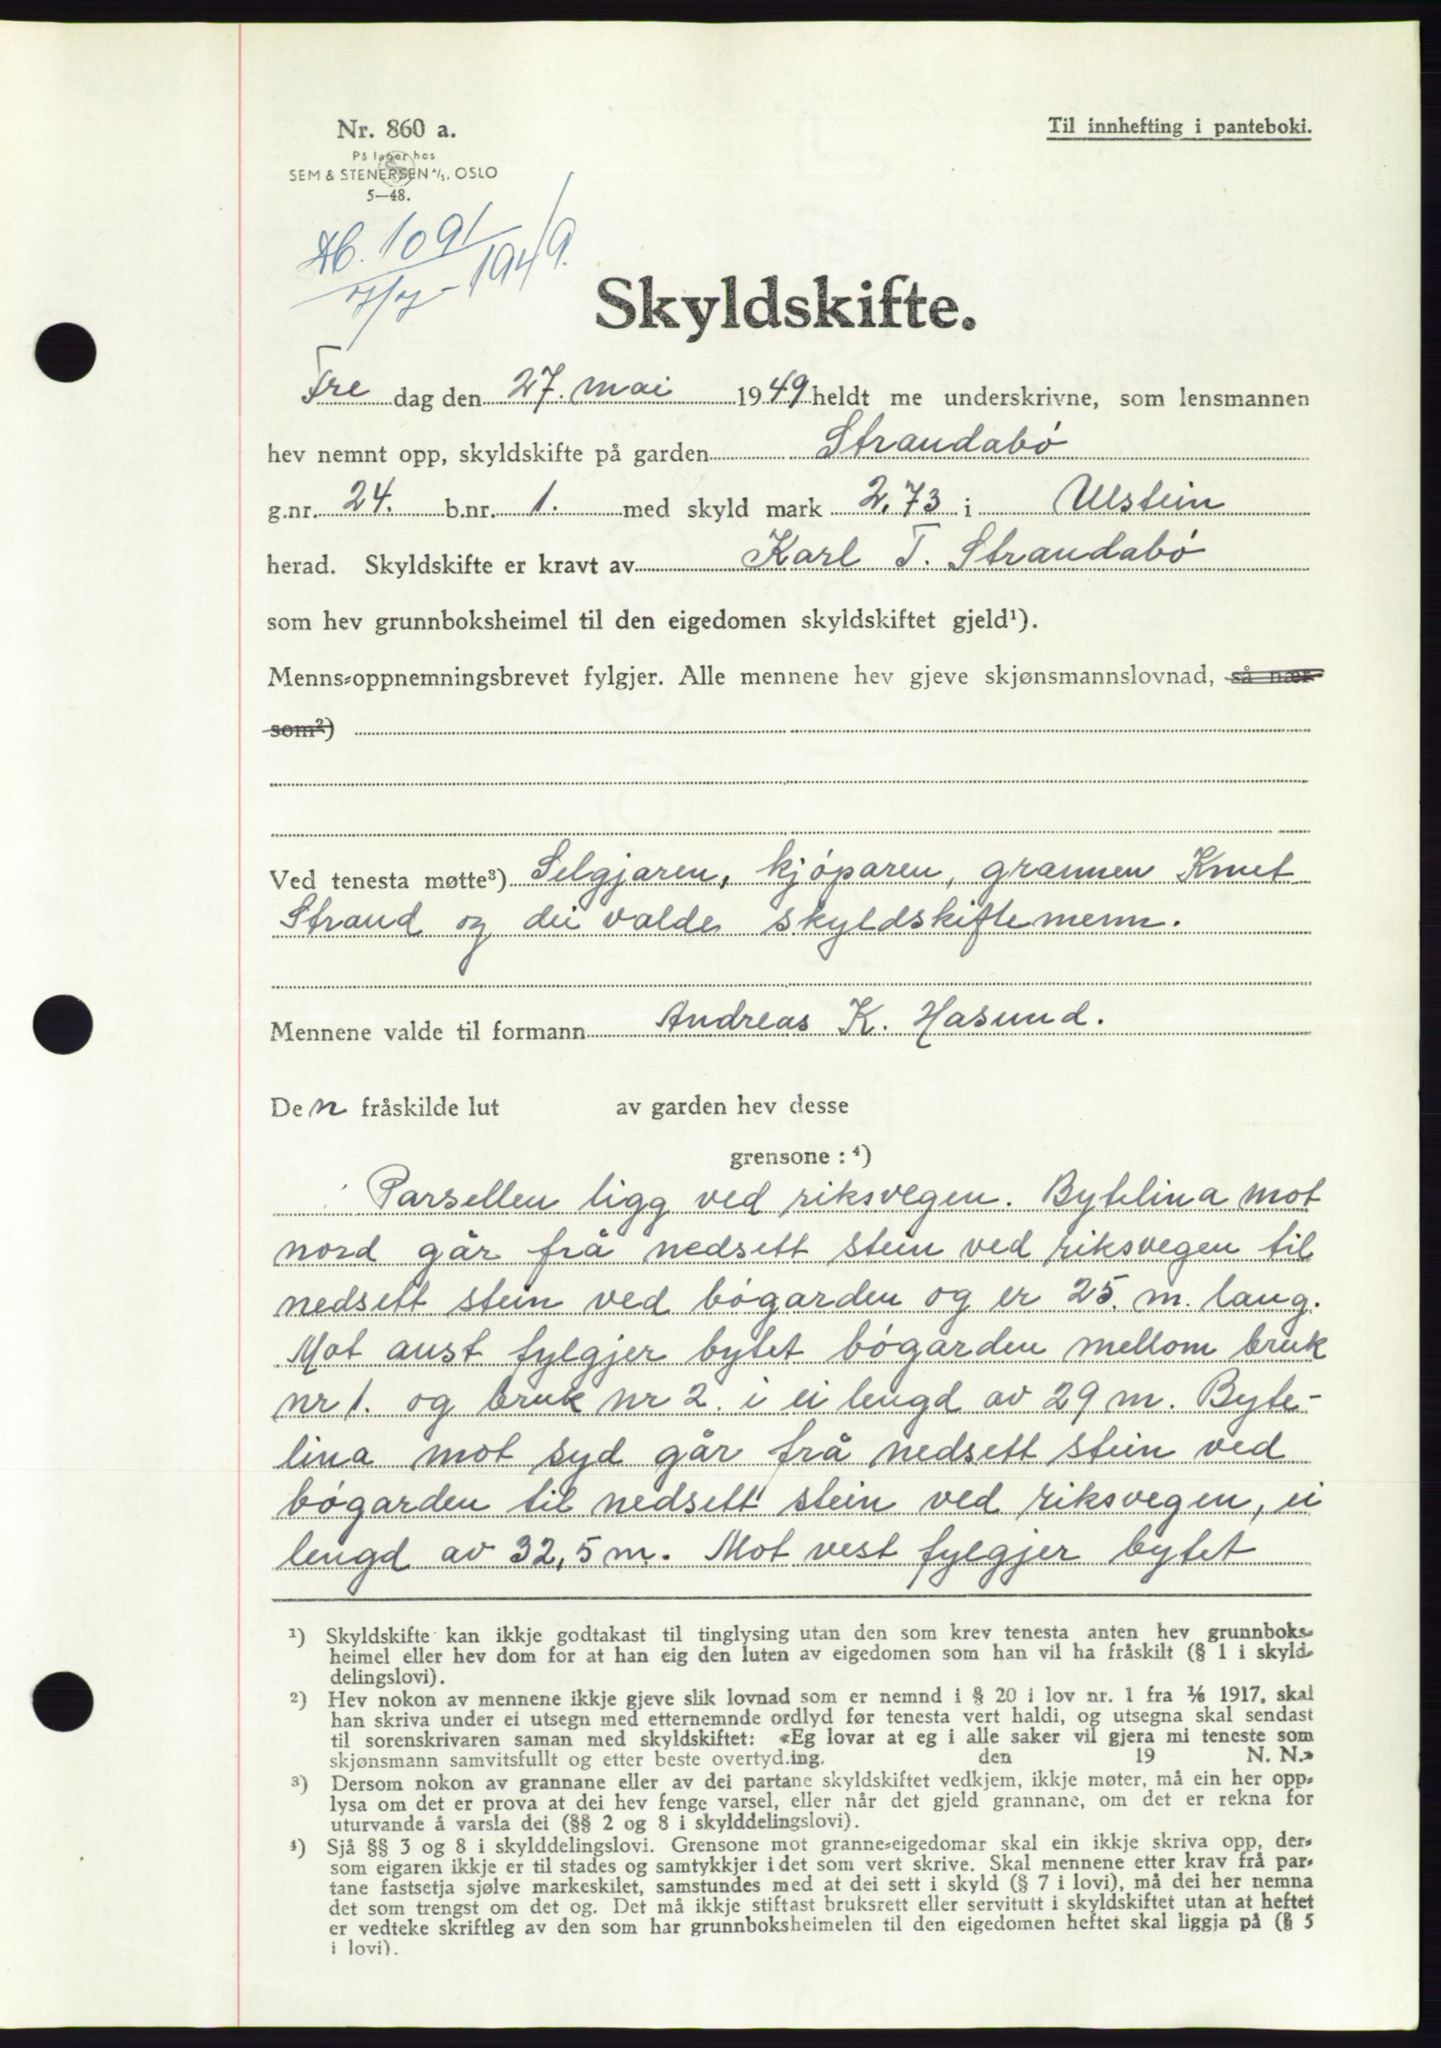 Nr. 860 a.
Til innhefting i panteboki.
På lager hos
SEM & STENERSEN A/S, OSLO
5—48.
Db. 1091/1949
7/7
Skyldskifte.
Fre dag den 27. mai 1949 heldt me underskrivne, som lensmannen
hev nemnt opp, skyldskifte på garden Strandabø
g.nr. 24. b.nr. 1. med skyld mark 2,73 i Ulstein
herad. Skyldskifte er kravt av Karl T. Strandabø
som hev grunnboksheimel til den eigedomen skyldskiftet gjeld¹).
Menns-oppnemningsbrevet fylgjer. Alle mennene hev gjeve skjønsmannslovnad, så nær
som²)
Ved tenesta møtte³) Selgjaren, kjøparen, grannen Knut
Strand og dei valde skyldskiftemenn.
Mennene valde til formann Andreas K. Hasund.
Den fråskilde lut av garden hev desse
grensone: ⁴)
Parsellen ligg ved riksvegen. Bytelina mot
nord går frå nedsett stein ved riksvegen til
nedsett stein ved bøgarden og er 25. m. lang.
Mot aust fylgjer bytet bøgarden mellom bruk
nr 1. og bruk nr 2. i ei lengd av 29 m. Byte-
lina mot syd går frå nedsett stein ved
bøgarden til nedsett stein ved riksvegen, ei
lengd av 32,5 m. Mot vest fylgjer bytet
¹) Skyldskifte kan ikkje godtakast til tinglysing utan den som krev tenesta anten hev grunnboks-
heimel eller hev dom for at han eig den luten av eigedomen som han vil ha fråskilt (§ 1 i skyld-
delingslovi).
²) Hev nokon av mennene ikkje gjeve slik lovnad som er nemnd i § 20 i lov nr. 1 fra 1/6 1917, skal
han skriva under ei utsegn med etternemnde ordlyd før tenesta vert haldi, og utsegna skal sendast
til sorenskrivaren saman med skyldskiftet: «Eg lovar at eg i alle saker vil gjera mi teneste som
skjønsmann samvitsfullt og etter beste overtyd.ing. den 19 N. N.»
³) Dersom nokon av grannane eller av dei partane skyldskiftet vedkjem, ikkje møter, må ein her opp-
lysa om det er prova at dei hev fenge varsel, eller når det gjeld grannane, om det er rekna for
uturvande å varsla dei (§§ 2 og 8 i skylddelingslovi).
⁴) Sjå §§ 3 og 8 i skylddelingslovi. Grensone mot granne-eigedomar skal ein ikkje skriva opp, der-
som eigaren ikkje er til stades og samtykkjer i det som vert skrive. Skal mennene etter krav frå par-
tane fastsetja sjølve markeskilet, samstundes med at dei sett i skyld (§ 7 i lovi), må dei her nemna
det som trengst om det og. Det må ikkje stiftast bruksrett eller servitutt i skyldskiftet utan at heftet
er vedteke skriftleg av den som har grunnboksheimelen til den eigedomen heftet skal liggja på (§ 5
i lovi).